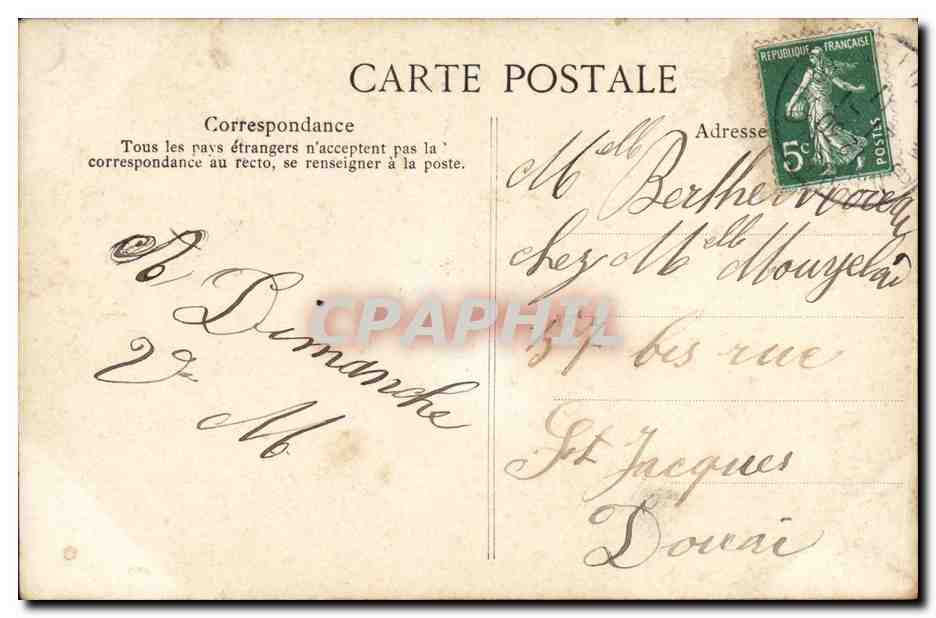 CARTE POSTALE
Correspondance
Tous les pays étrangers n'acceptent pas la
correspondance au recto, se renseigner à la poste.
Dimanche
M
Adresse
REPUBLIQUE FRANÇAISE
5c
POSTES
Melle Berthe
chez Melle
57 bis rue
St Jacques
Douai
CPAPHIL